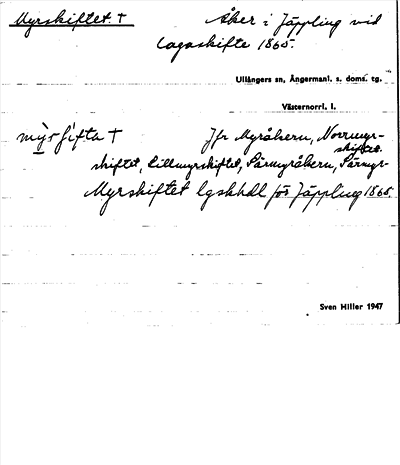 Myrskiftet † Åker i Jäppling vid
lagaskifte 1865.
Ullångers sn, Ångermanl. s. doms. tg.
Västernorrl. l.
my̱rʃifta † Jfr Myråkern, Norrmyr-
skiftet,
skiftet, Lillmyrskiftet, Sörmyråkern, Sörmyr-
Myrskiftet lgskhdl för Jäppling 1865.
Sven Hiller 1947